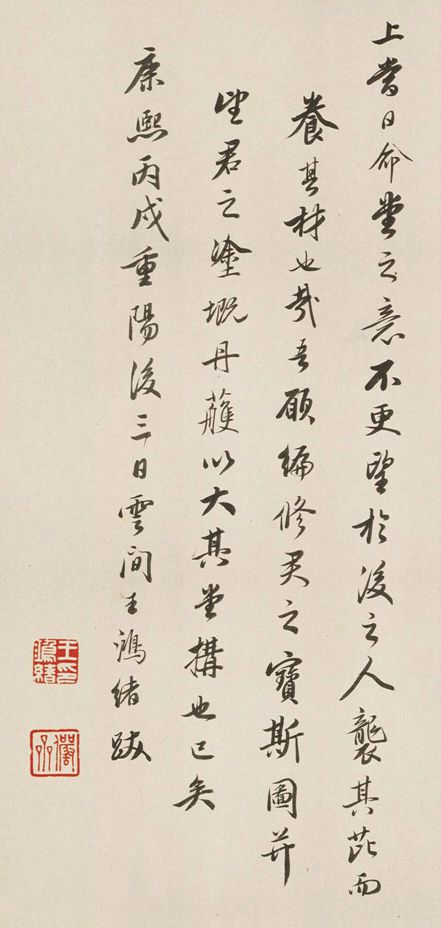 上當日命堂之意不更望於後之人襲其芘而
養其材也哉吾願編修君之寶斯圖并
望君之塗墍丹雘以大其堂搆也已矣
康熙丙戌重陽後三日雲間王鴻緒跋
王印鴻緒